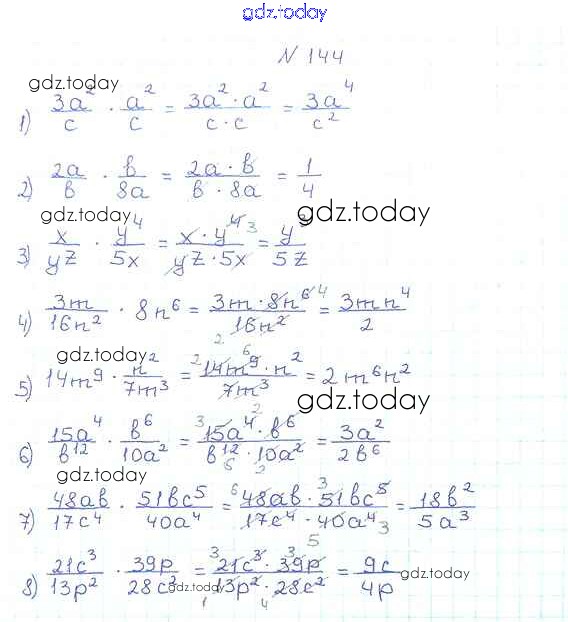 gdz.today
N 144
gdz.today
1) 3a²/c · a²/c = 3a²·a²/c·c = 3a⁴/c²
2) 2a/в · в/8a = 2a·в/в·8a = 1/4
gdz.today gdz.today
3) x/yz · y⁴/5x = x·y⁴ ³/yz·5x = y³/5z
4) 3m/16n² · 8n⁶ = 3m·8n⁶ ⁴/16n² 2 = 3mn⁴/2
gdz.today
5) 14m⁹ · n²/7m³ = 2 14m⁹ ⁶·n²/7m³ = 2m⁶n²
gdz.today
6) 15a⁴/в¹² · в⁶/10a² = 3 15a⁴ ²·в⁶/в¹² 6·10a² 2 = 3a²/2в⁶
gdz.today
7) 48aв/17c⁴ · 51вc⁵/40a⁴ = 6 48aв · 3 51вc⁵/17c⁴ · 40a⁴ 3 5 = 18в²/5a³
8) 21c³/13p² · 39p/28c² = 3 21c³ · 3 39p/13p² 1 · 28c² 4 = 9c/4p
gdz.today gdz.today